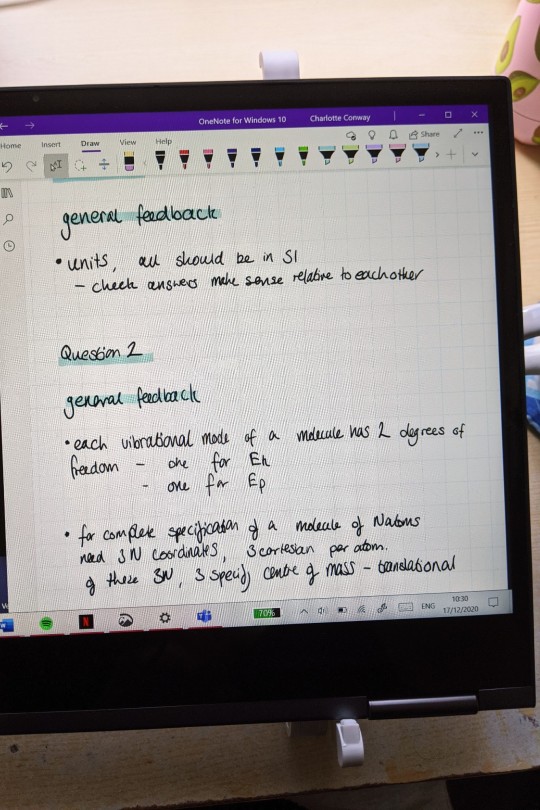 OneNote for Windows 10 Charlotte Conway
Home Insert Draw View Help Share
general feedback
• units, all should be in SI
- check answers make sense relative to each other
Question 2
general feedback
• each vibrational mode of a molecule has 2 degrees of
freedom - one for Ek
- one for Ep
• for complete specification of a molecule of N atoms
need 3N coordinates, 3 cartesian per atom.
of these 3N, 3 specify centre of mass - translational
70% ENG 10:30
17/12/2020